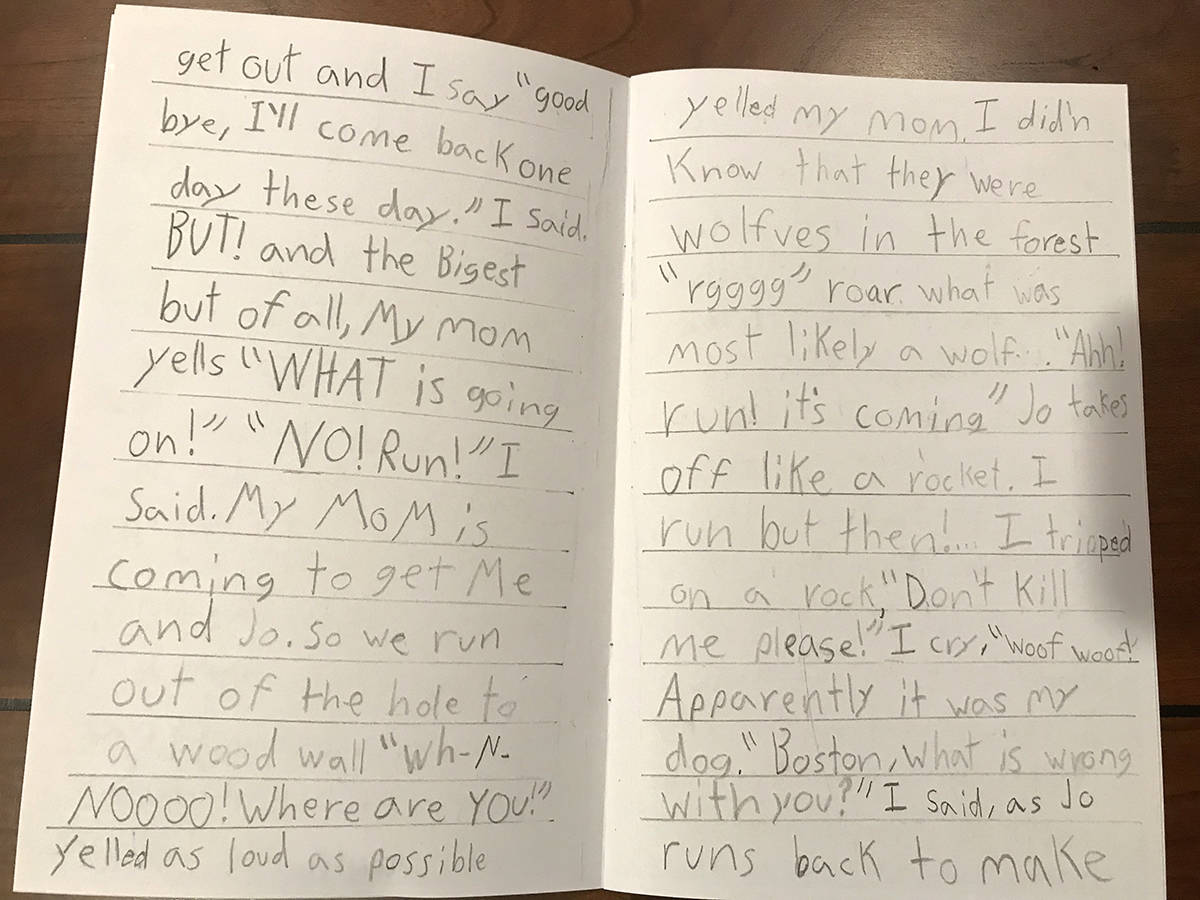 get out and I say "good
bye, I'll come back one
day these day." I said.
BUT! and the Bigest
but of all, My mom
yells "WHAT is going
on!" "NO! Run!" I
Said. My MoM is
coming to get Me
and Jo. So we run
out of the hole to
a wood wall "Wh-N-
NOOOO! Where are YOU!"
yelled as loud as possible
yelled my mom. I didn
Know that they were
wolfves in the forest
"rgggg" roar. what was
most likely a wolf.... "Ahh!
run! it's coming" Jo takes
off like a rocket. I
run but then!... I tripped
on a rock, "Don't Kill
me please!" I cry, "woof woof!"
Apparently it was my
dog. "Boston, what is wrong
with you?" I said, as Jo
runs back to make